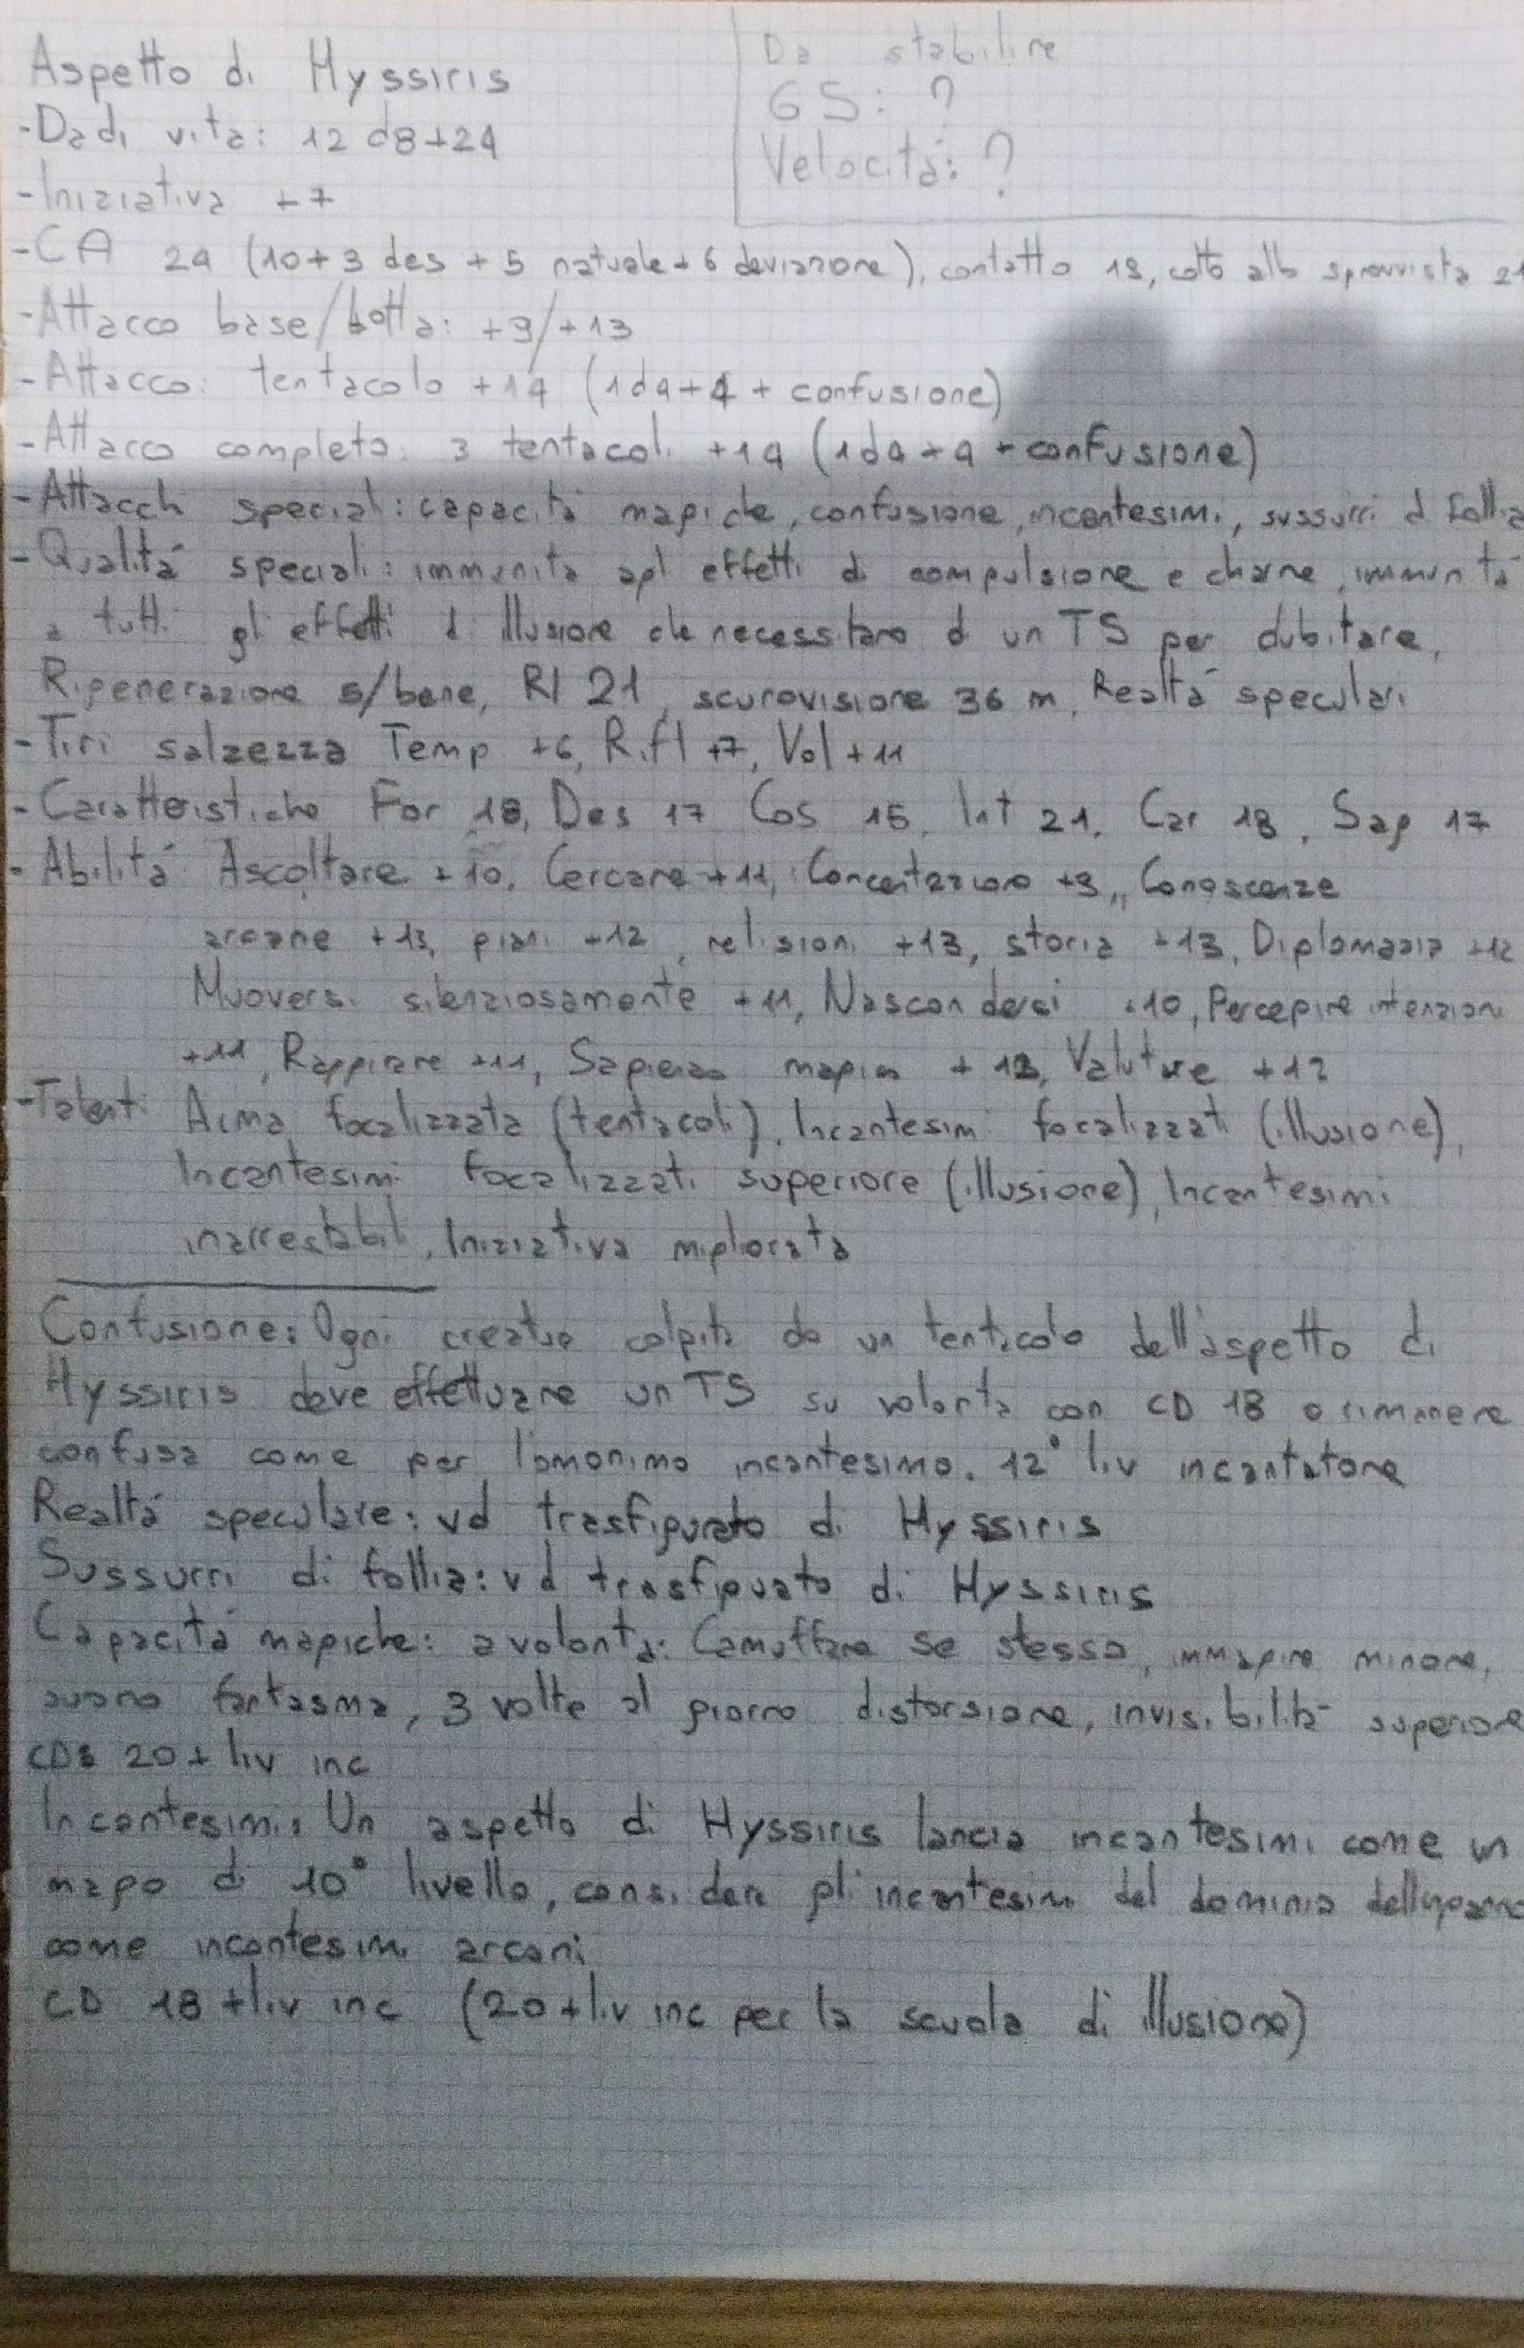 Aspetto di Hyssiris
Da stabilire
GS: ?
Velocità: ?
-Dadi vita: 12 d8+24
-Iniziativa +7
-CA 24 (10+3 des + 5 naturale + 6 deviazione), contatto 19, colto alla sprovvista 21
-Attacco base/lotta: +9/+13
-Attacco: tentacolo +14 (1d4+4 + confusione)
-Attacco completo: 3 tentacoli +14 (1d4+4 + confusione)
-Attacchi speciali: capacità magiche, confusione, incantesimi, sussurri di follia
-Qualità speciali: immunità agli effetti di compulsione e charme, immunità
a tutti gli effetti di illusione che necessitano di un TS per dubitare,
Rigenerazione 5/bene, RI 21, scurovisione 36 m, Realtà speculari
-Tiri salvezza Temp +6, Rifl +7, Vol +11
-Caratteristiche For 18, Des 17 Cos 15, Int 21, Car 18, Sag 17
-Abilità Ascoltare +10, Cercare +11, Concentrazione +9, Conoscenze
arcane +13, piani +12, religioni +13, storia +13, Diplomazia +12
Muoversi silenziosamente +11, Nascondersi +10, Percepire intenzioni
+11, Raggirare +11, Sapienza magica + 12, Valutare +12
-Talenti Arma focalizzata (tentacoli), Incantesimi focalizzati (illusione),
Incantesimi focalizzati superiore (illusione), Incantesimi
inarrestabili, Iniziativa migliorata
Confusione: Ogni creatura colpita da un tentacolo dell'aspetto di
Hyssiris deve effettuare un TS su volontà con CD 18 o rimanere
confusa come per l'omonimo incantesimo. 12° liv incantatore
Realtà speculare: vd trasfigurato di Hyssiris
Sussurri di follia: vd trasfigurato di Hyssiris
Capacità magiche: a volontà: Camuffare se stesso, immagine minore,
suono fantasma, 3 volte al giorno distorsione, invisibilità superiore
CD: 20+ liv inc
Incantesimi: Un aspetto di Hyssiris lancia incantesimi come un
mago di 10° livello, considera gli incantesimi del dominio dell'inganno
come incantesimi arcani
CD 18 + liv inc (20 + liv inc per la scuola di illusione)